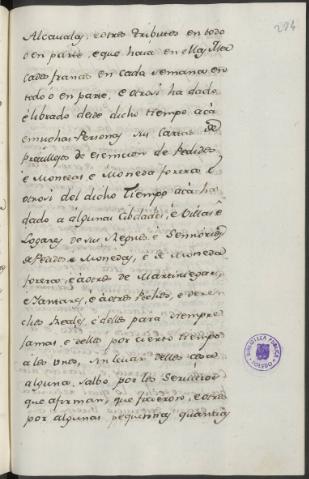 274
Alcavalas, e otros tributos en todo
o en parte, e que haia en ellas Mer
cados francos en cada semana en
todo ó en parte, e otrosi ha dado
é librado desde dicho tiempo acá
à muchas Personas sus Cartas de
Privillejos de esencion de Pedidos
é Monedas é Moneda forera é
otrosi del dicho Tiempo acá ha
dado a algunas Cibdades, é Villas é
Logares de sus Regnos é Sennorios
de Pedidos e Monedas, é de Moneda
forera, é à otros de Martiniegas,
e Yantares, é à otros Pechos, é dere
chos Reales, é dellos para siempre
jamas, é dellos por cierto tiempo
à los unos, sin levar dellos cosa
alguna, salbo por los Servicios
que afirman, que ficieron, e otros
por algunas pequennas quantias
BIBLIOTECA PUBLICA
TOLEDO